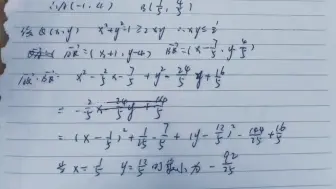 ∴A(-1, 4) B(7/5, 4/5)
设Q(x,y) x²+y²=1≥2xy ∴xy≤½
=(x+1, y-4) =(x-7/5, y-4/5)
x²-2/5x-7/5+y²-24/5y+16/5
=-2/5x-24/5y+14/5
=(x-1/5)²+1/25-7/5+(y-12/5)²-144/25+16/5
当x=1/5 y=12/5时最小为-92/25